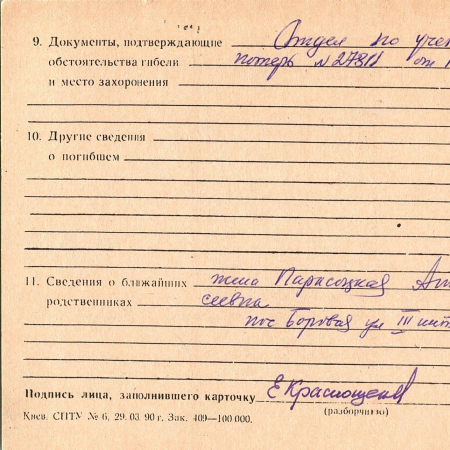 9. Документы, подтверждающие Отдел по учет
обстоятельства гибели потерь №27811 от 1
и место захоронения
10. Другие сведения
о погибшем
11. Сведения о ближайших жена Парасоцкая
родственниках сеевна
пос Боровая ул III инт
Подпись лица, заполнившего карточку ЕКраснощеков
(разборчиво)
Киев. СПТУ № 6. 29. 03. 90 г. Зак. 409—100 000.